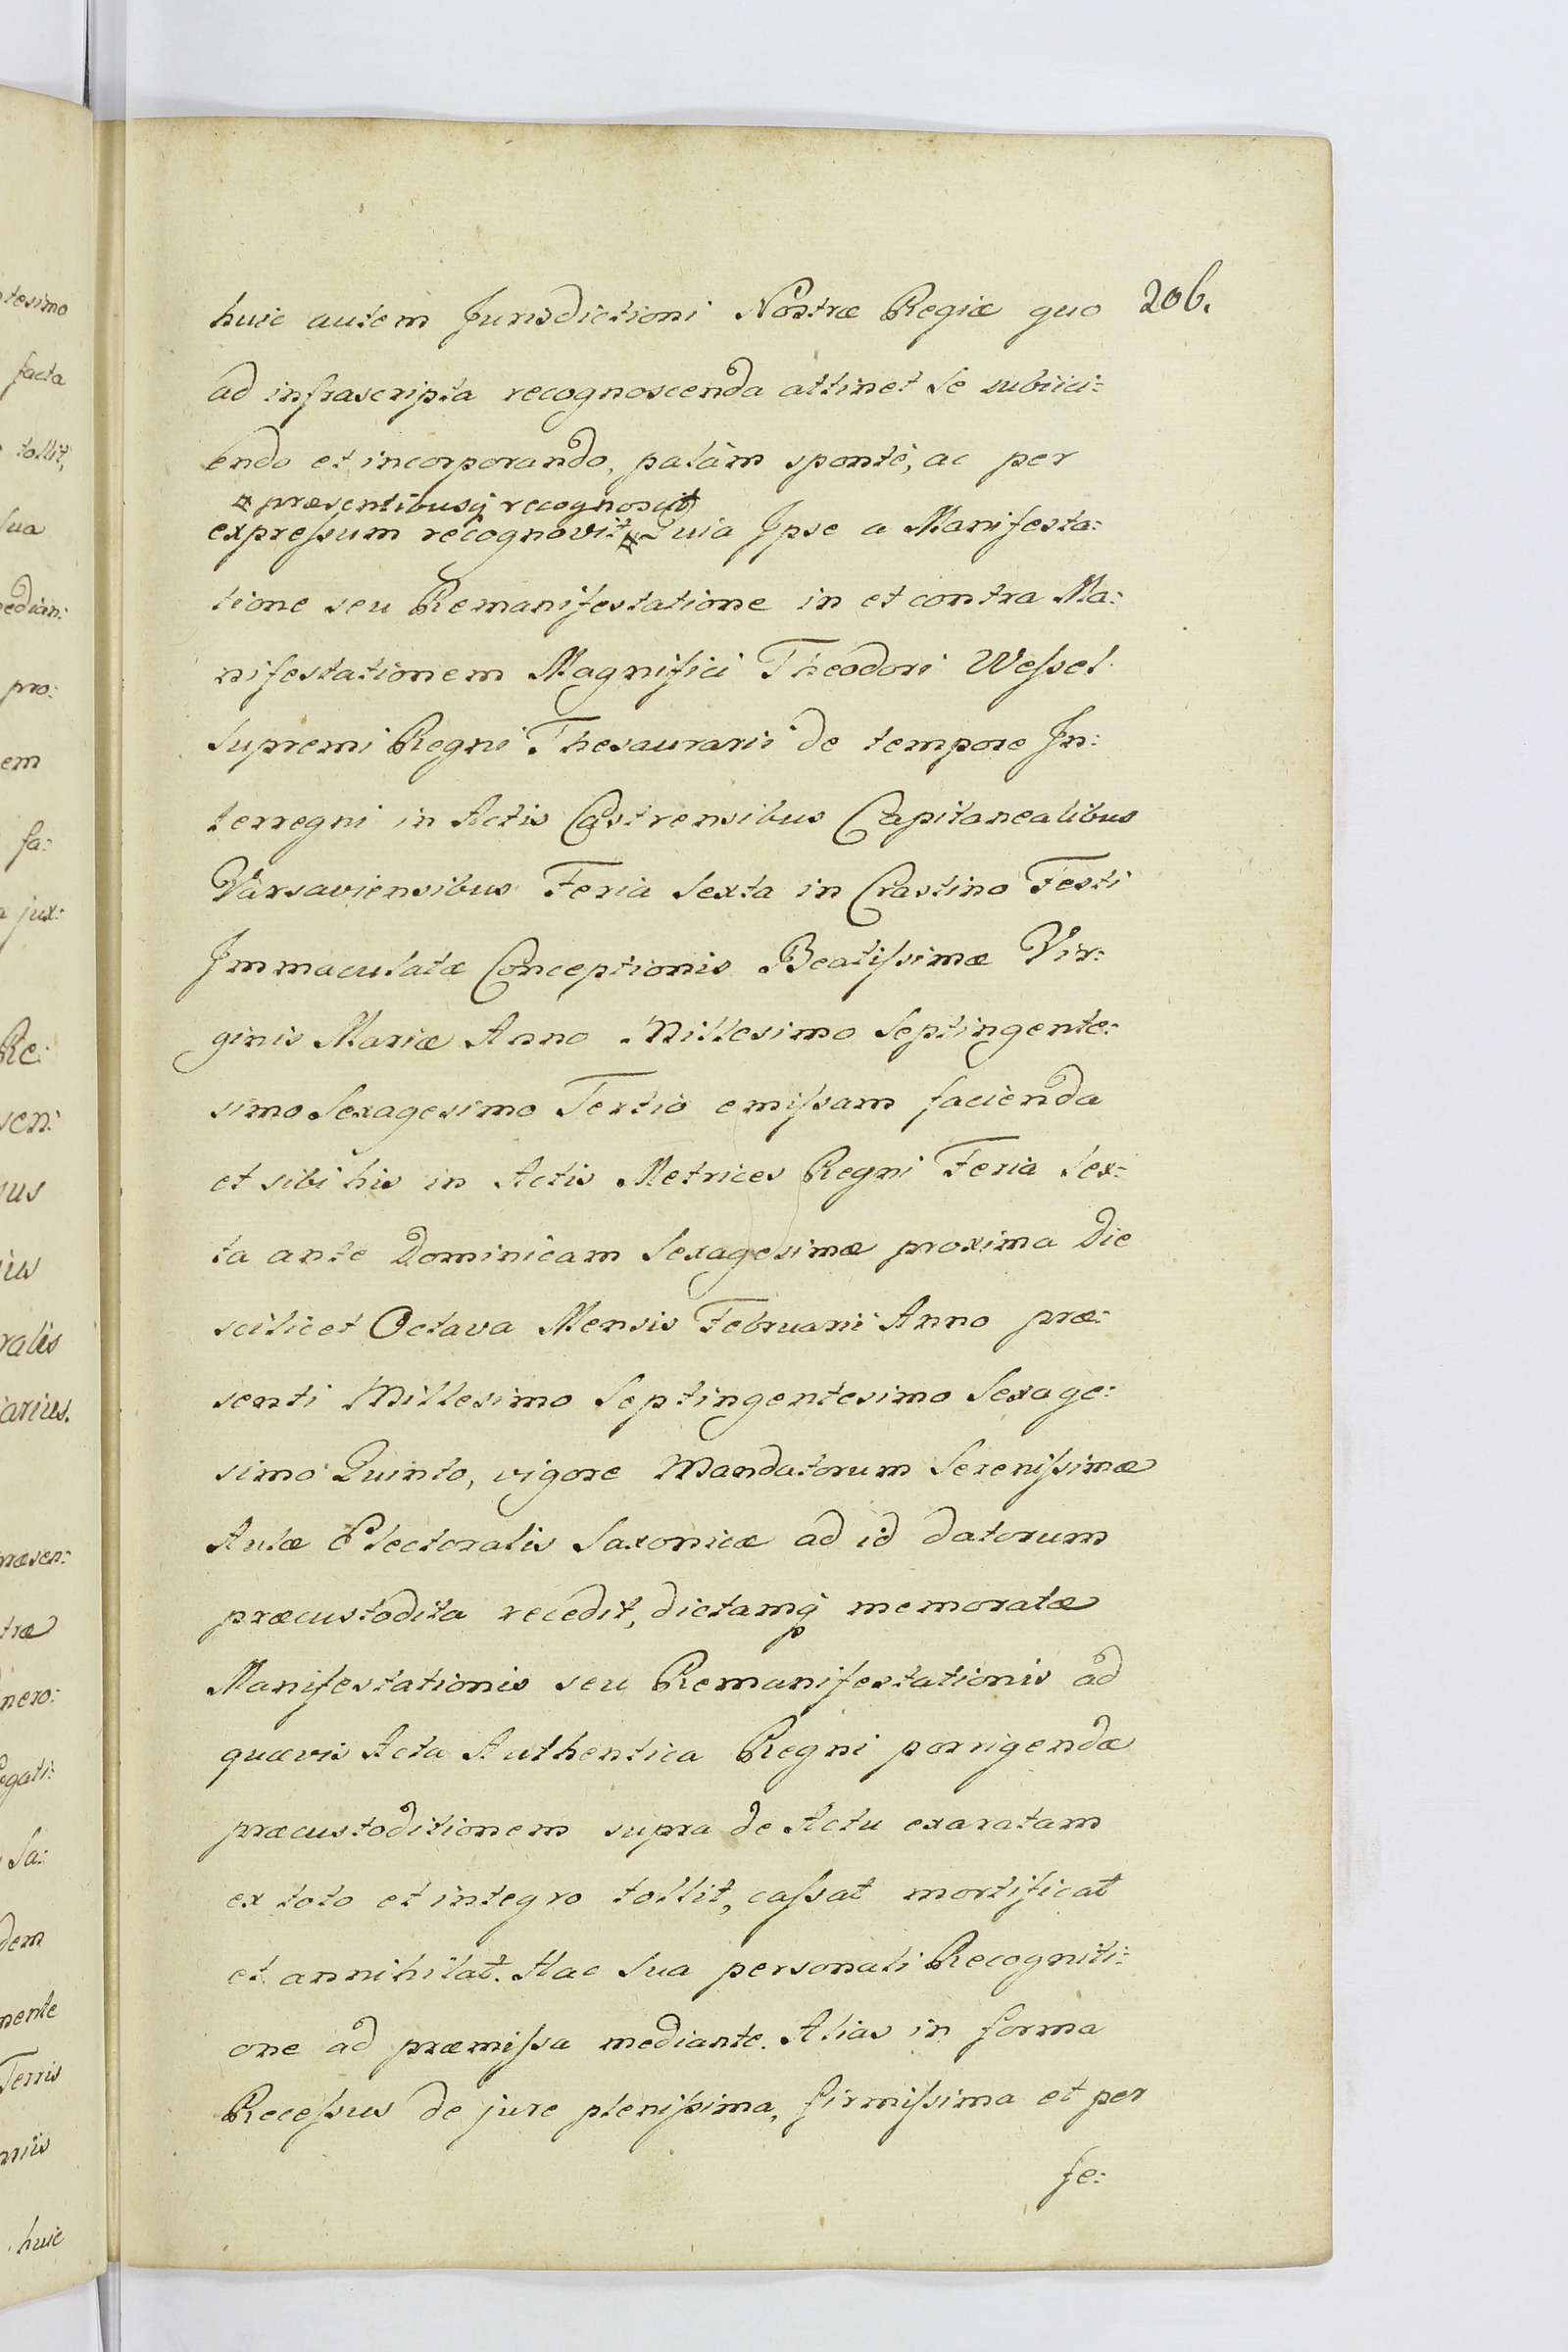 huic autem Jurisdictioni Nostræ Regiæ quo 206.
ad infrascripta recognoscenda attinet se subiici:
endo et incorporando, palàm spontè, ac per
¤ præsentibusq recognoscit
expreſsum recognovit ¤ Quia Ipse a Manifesta:
tione seu Remanifestatione in et contra Ma:
nifestationem Magnifici Theodori Weſsel
Supremi Regni Thesaurarii de tempore In:
terregni in Actis Castrensibus Capitanealibus
Varsaviensibus Feria Sexta in Crastino Festi
Immaculatæ Conceptionis Beatiſsimæ Vir:
ginis Mariæ Anno Millesimo Septingente:
simo Sexagesimo Tertio emiſsam facienda
et sibi his in Actis Metrices Regni Feria Sex:
ta ante Dominicam Sexagesimæ proxima Die
scilicet Octava Mensis Februarii Anno præ:
senti Millesimo Septingentesimo Sexage:
simo Quinto, vigore Mandatorum Sereniſsimæ
Aulæ Electoralis Saxonicæ ad id datorum
præcustodita recedit, dictamq memoratæ
Manifestationis seu Remanifestationis ad
quævis Acta Authentica Regni porrigendæ
præcustoditionem supra de Actu exaratam
ex toto et integro tollit, caſsat mortificat
et annihilat. Hac Sua personali Recogniti:
one ad præmiſsa mediante. Alias in forma
Receſsus de jure pleniſsima, firmiſsima et per
fe:
tesimo
facta
tollit,
Sua
pro:
em
fa:
jux:
Re:
sen:
ralis
arius.
ræsen:
træ
nero:
Sa:
dem
mente
Terris
huic